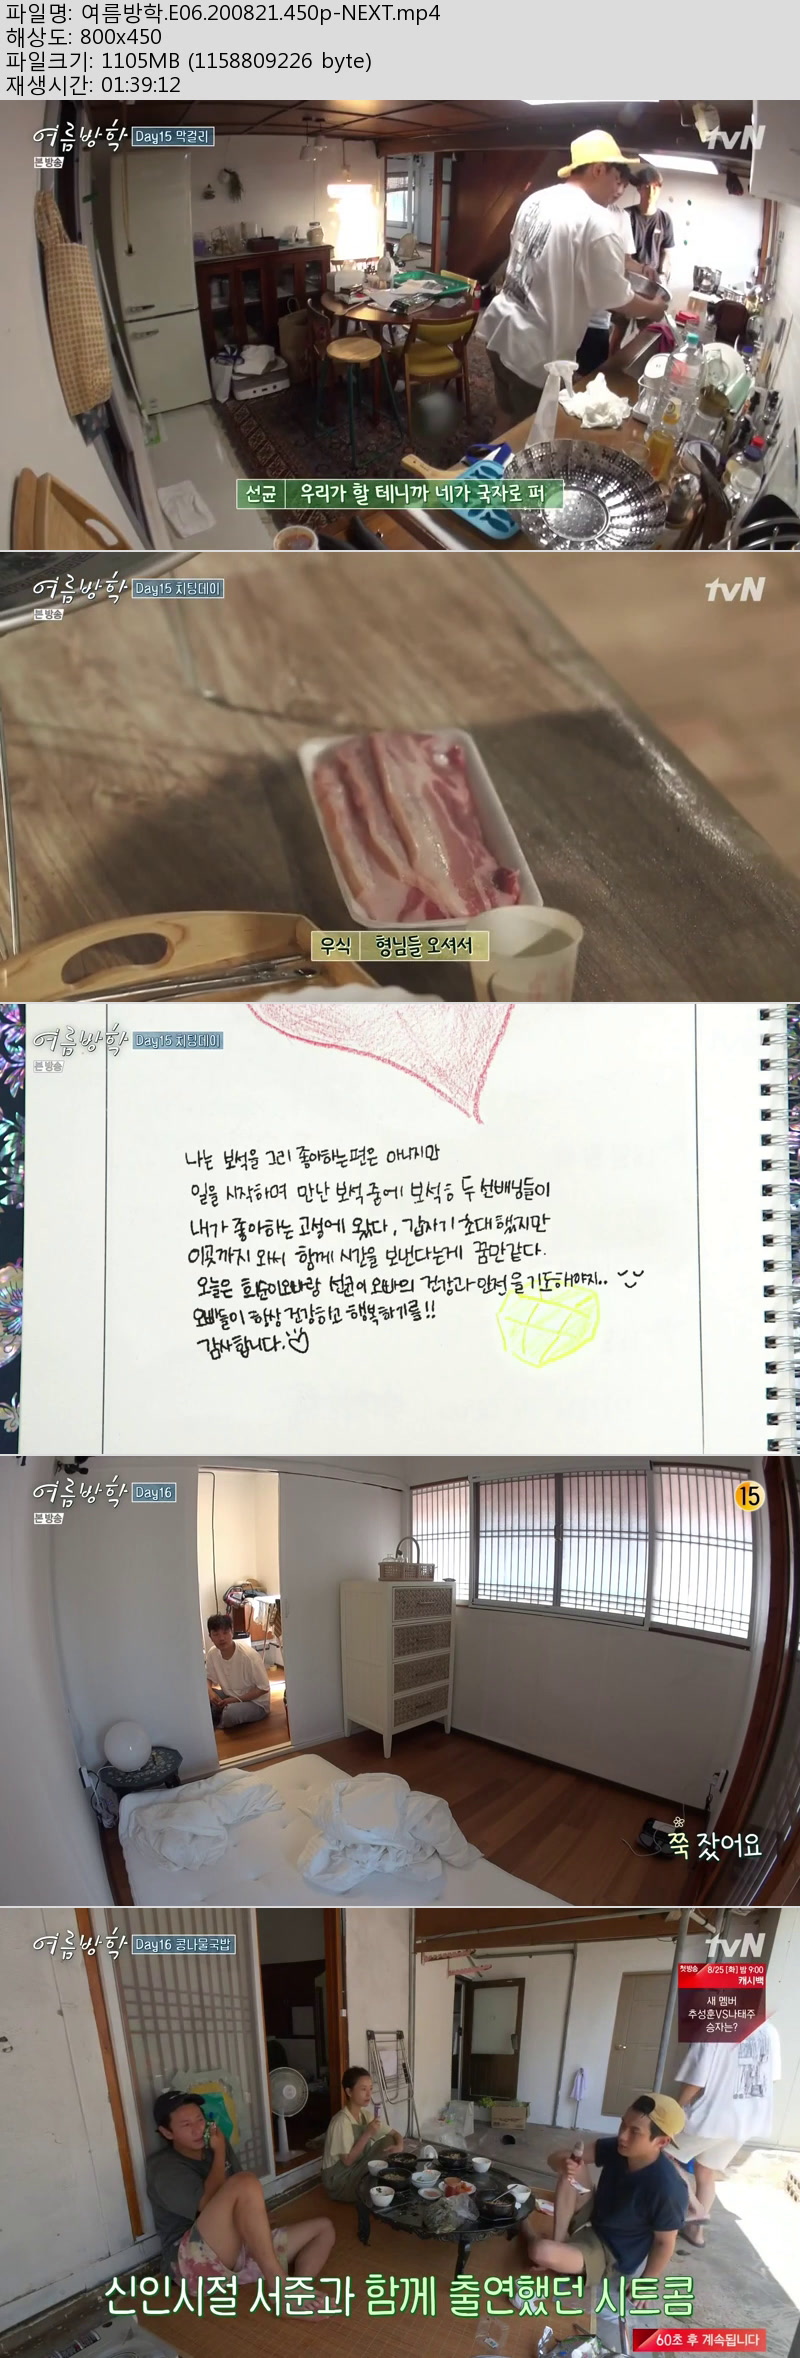 파일명: 여름방학.E06.200821.450p-NEXT.mp4
해상도: 800x450
파일크기: 1105MB (1158809226 byte)
재생시간: 01:39:12
여름방학 Day15 막걸리
본 방송
tvN
선균 우리가 할 테니까 네가 국자로 퍼
여름방학 Day15 치팅데이
본 방송
tvN
우식 형님들 오셔서
여름방학 Day15 치팅데이
본 방송
나는 보석을 그리 좋아하는편은 아니지만
일을 시작하며 만난 보석중에 보석인 두 선배님들이
내가 좋아하는 고성에 왔다. 갑자기 초대했지만
이곳까지 와서 함께 시간을 보낸다는게 꿈만같다.
오늘은 희순이오빠랑 선균이 오빠의 건강과 안전을 기도해야지..
오빠들이 항상 건강하고 행복하기를!!
감사합니다.
여름방학 Day16
본 방송
15
쭉 잤어요
여름방학 Day16 콩나물국밥
본 방송
tvN
첫방송 8/25 [화] 밤 9:00
캐시백
새 멤버
추성훈VS나태주
승자는?
신인시절 서준과 함께 출연했던 시트콤
60초 후 계속됩니다